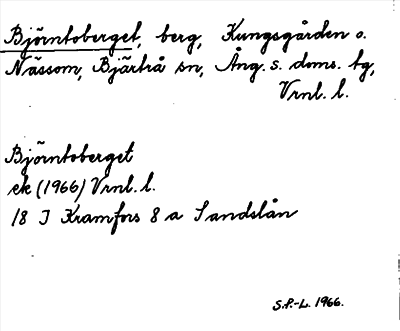 Björntoberget, berg, Kungsgården o.
Nässom, Bjärtrå sn, Ång. s. doms. tg,
Vrnl. l.
Björntoberget
ek (1966) Vrnl. l.
18 I Kramfors 8 a Sandslån
S.P.-L. 1966.